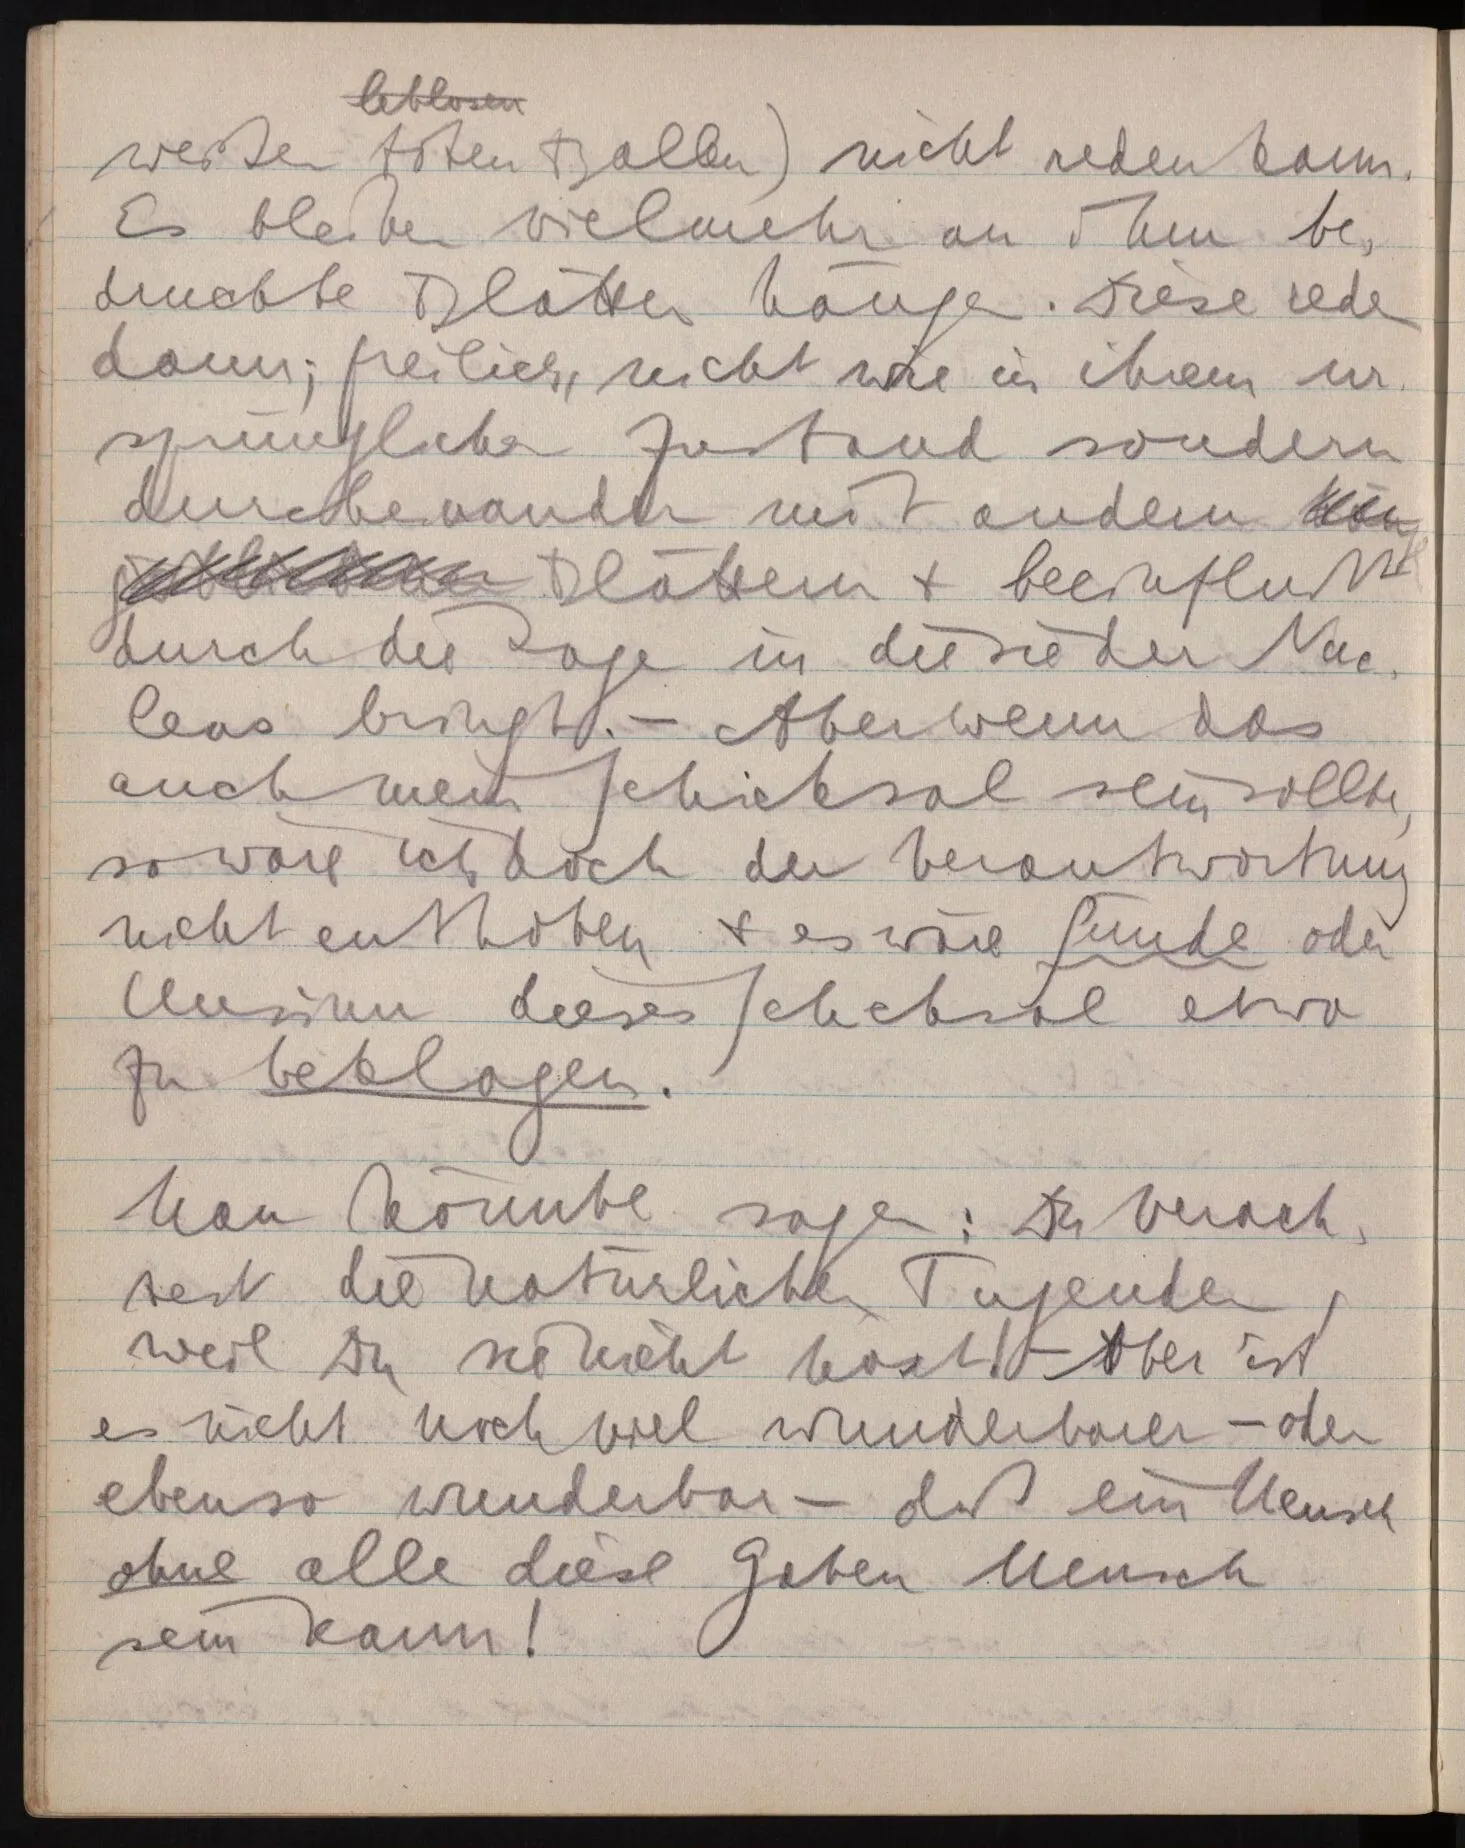 leblosen
weißen toten Ballen) nicht reden kann.
Es bleiben vielmehr an ihm be-
druckte Blätter hängen. Diese reden
dann; freilich, nicht wie in ihrem ur-
sprünglichen Zustand sondern
durcheinander mit andern
Blättern + beeinflußt
durch die Lage in die sie der Nuc-
leus bringt. – Aber wenn das
auch mein Schicksal sein sollte,
so wäre ich doch der Verantwortung
nicht enthoben + es wäre Sünde oder
Unsinn dieses Schicksal etwa
zu beklagen.
Man könnte sagen: Du verach-
test die natürlichen Tugenden,
weil Du sie nicht hast! – Aber ist
es nicht noch viel wunderbarer – oder
ebenso wunderbar – daß ein Mensch
ohne alle diese Gaben Mensch
sein kann!